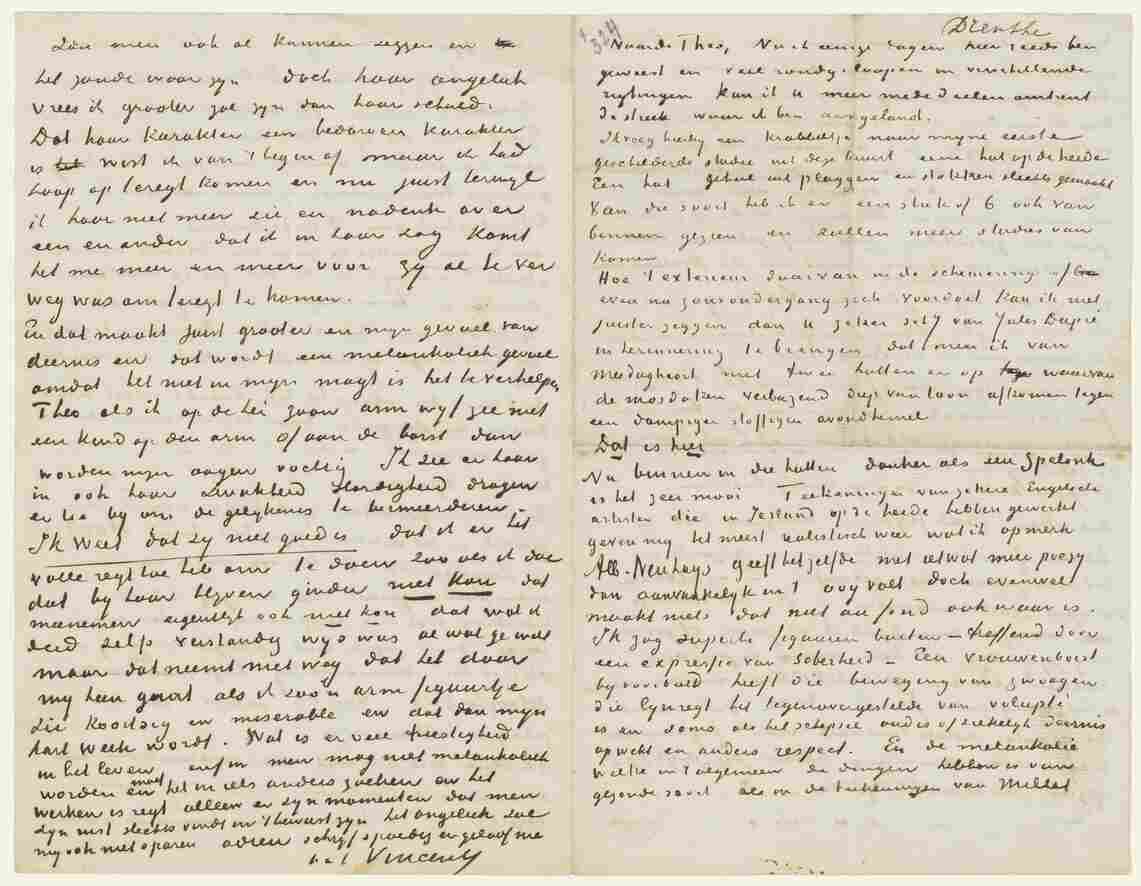 Zou men ook al kunnen zeggen en
het zoude waar zyn doch haar ongeluk
vrees ik grooter zal zyn dan haar schuld.
Dat haar karakter een bedorven karakter
is wist ik van 't begin af maar ik had
hoop op teregt komen en nu juist terwyl
ik haar niet meer zie en nadenk over
een en ander dat ik in haar zag komt
het me meer en meer voor zy al te ver
weg was om teregt te komen.
En dat maakt juist grooter en myn gevoel van
deernis en dat wordt een melankoliek gevoel
omdat het niet in myn magt is het te verhelpen
Theo als ik op de hei zoo'n arm wyf zie met
een kind op den arm of aan de borst dan
worden myn oogen vochtig Ik zie er haar
in ook haar zwakheid slordigheid dragen
er toe by om de gelykenis te vermeerderen.
Ik weet dat zy niet goed is dat ik er het
volle regt toe heb om te doen zoo als ik doe
dat by haar blyven ginder niet kon dat
meenemen eigentlyk ook niet kon dat wat ik
deed zelfs verstandig wys was al wat ge wilt
maar dat neemt niet weg dat het door
my heen gaat als ik zoo'n arm figuurtje
zie koortsig en miserable en dat dan myn
hart week wordt. Wat is er veel triestigheid
in het leven enfin men mag niet melankoliek
worden en moet het in iets anders zoeken en het
werken is regt alleen er zyn momenten dat men
zyn rust slechts vindt in 't bewust zyn het ongeluk zal
my ook niet sparen adieu schryf spoedig en geloof me
t.a.t. Vincent
Drenthe
324
Waarde Theo, Nu ik eenige dagen hier reeds ben
geweest en veel rondgeloopen in verschillende
rigtingen kan ik u meer mededeelen omtrent
de streek waar ik ben aangeland.
Ik voeg hierby een krabbeltje naar myne eerste
geschilderde studie uit deze buurt eene hut op de heide
Een hut geheel uit plaggen en stokken slechts gemaakt
Van die soort heb ik er een stuk of 6 ook van
binnen gezien en zullen meer studies van
komen
Hoe 't exterieur daarvan in de schemering of
even na zonsondergang zich voordoet kan ik niet
juister zeggen dan u zeker sch'ij van Jules Dupré
in herinnering te brengen dat meen ik van
Mesdag hoort met twee hutten er op waarvan
de mosdaken verbazend diep van toon afkomen tegen
een dampigen stoffigen avondhemel
Dat is hier
Nu binnen in die hutten donker als een spelonk
is het zeer mooi Teekeningen van zekere Engelsche
artisten die in Ierland op de heide hebben gewerkt
geven my het meest realistisch weer wat ik opmerk
Alb. Neuhuys geeft hetzelfde met ietwat meer poezy
dan aanvankelyk in 't oog valt doch evenwel
maakt niets dat niet au fond ook waar is.
Ik zag superbe figuren buiten – treffend door
een expressie van soberheid – Een vrouwenborst
byvoorbeeld heeft die beweging van zwoegen
die lynregt het tegenovergestelde van volupté
is en soms als het schepsel oud is of ziekelyk deernis
opwekt en anders respect. En de melankolie
welke in 't algemeen de dingen hebben is van
gezonde soort als in de teekeningen van Millet